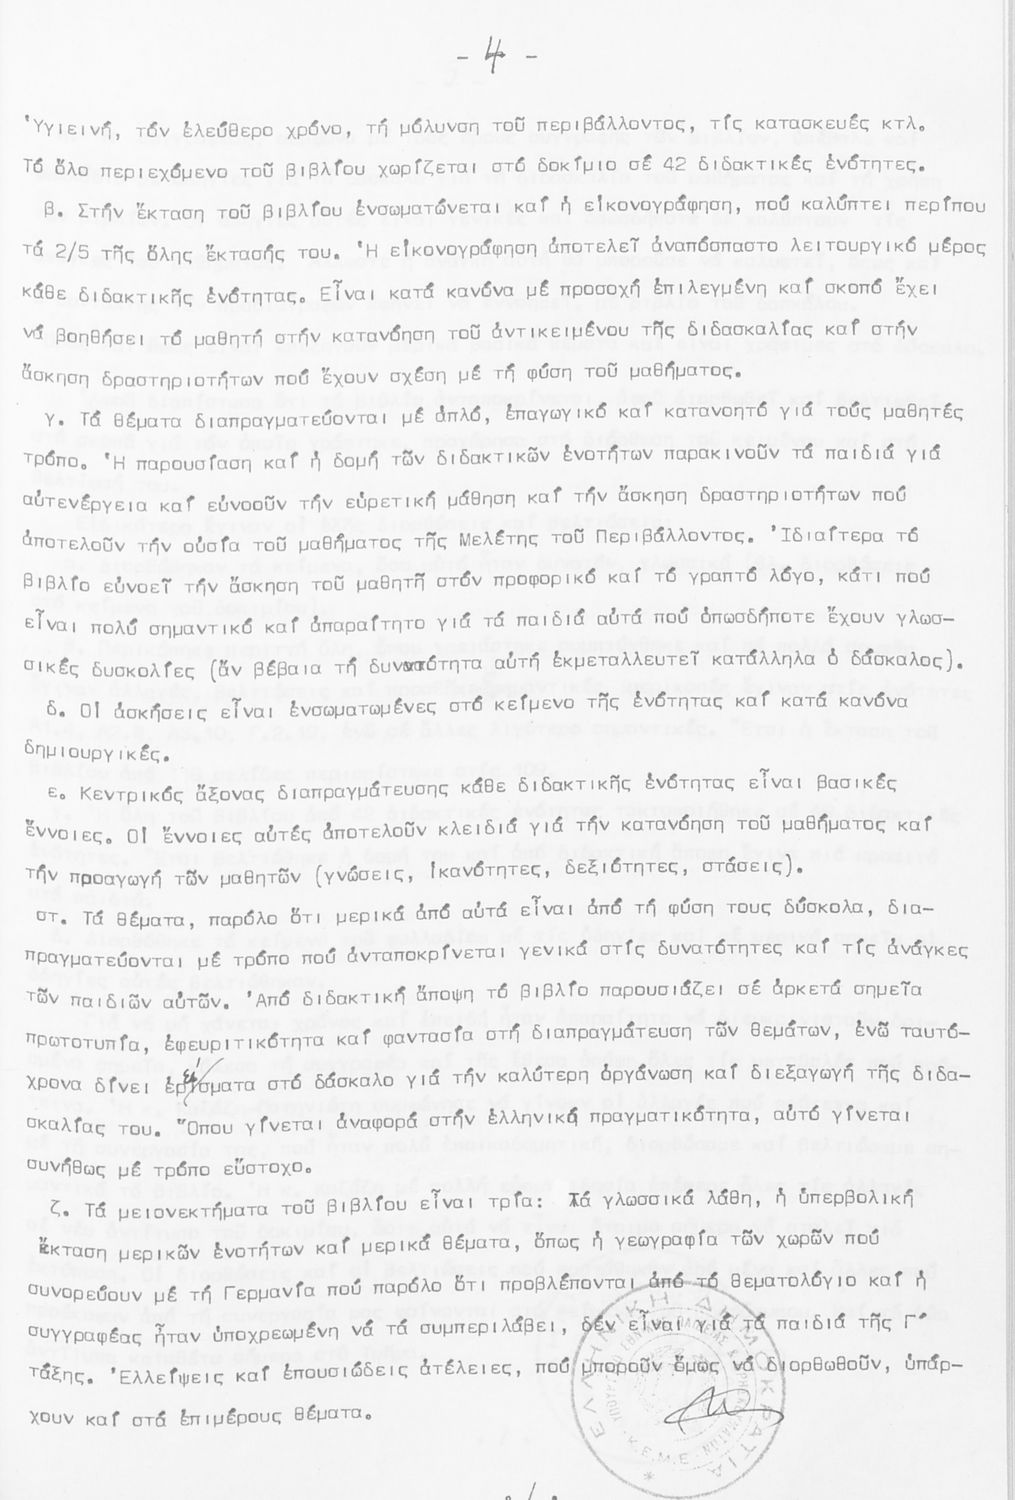 - 4 -
Ὑγιεινή, τόν ἐλεύθερο χρόνο, τή μόλυνση τοῦ περιβάλλοντος, τίς κατασκευές κτλ.
Τό ὅλο περιεχόμενο τοῦ βιβλίου χωρίζεται στό δοκίμιο σέ 42 διδακτικές ἑνότητες.
β. Στήν ἔκταση τοῦ βιβλίου ἐνσωματώνεται καί ἡ εἰκονογράφηση, πού καλύπτει περίπου
τά 2/5 τῆς ὅλης ἔκτασής του. Ἡ εἰκονογράφηση ἀποτελεῖ ἀναπόσπαστο λειτουργικό μέρος
κάθε διδακτικῆς ἑνότητας. Εἶναι κατά κανόνα μέ προσοχή ἐπιλεγμένη καί σκοπό ἔχει
νά βοηθήσει τό μαθητή στήν κατανόηση τοῦ ἀντικειμένου τῆς διδασκαλίας καί στήν
ἄσκηση δραστηριοτήτων πού ἔχουν σχέση μέ τή φύση τοῦ μαθήματος.
γ. Τά θέματα διαπραγματεύονται μέ ἁπλό, ἐπαγωγικό καί κατανοητό γιά τούς μαθητές
τρόπο. Ἡ παρουσίαση καί ἡ δομή τῶν διδακτικῶν ἑνοτήτων παρακινοῦν τά παιδιά γιά
αὐτενέργεια καί εὐνοοῦν τήν εὑρετική μάθηση καί τήν ἄσκηση δραστηριοτήτων πού
ἀποτελοῦν τήν οὐσία τοῦ μαθήματος τῆς Μελέτης τοῦ Περιβάλλοντος. Ἰδιαίτερα τό
βιβλίο εὐνοεῖ τήν ἄσκηση τοῦ μαθητῆ στόν προφορικό καί τό γραπτό λόγο, κάτι πού
εἶναι πολύ σημαντικό καί ἀπαραίτητο γιά τά παιδιά αὐτά πού ὁπωσδήποτε ἔχουν γλωσ-
σικές δυσκολίες (ἄν βέβαια τή δυνατότητα αὐτή ἐκμεταλλευτεῖ κατάλληλα ὁ δάσκαλος).
δ. Οἱ ἀσκήσεις εἶναι ἐνσωματωμένες στό κείμενο τῆς ἑνότητας καί κατά κανόνα
δημιουργικές.
ε. Κεντρικός ἄξονας διαπραγμάτευσης κάθε διδακτικῆς ἑνότητας εἶναι βασικές
ἔννοιες. Οἱ ἔννοιες αὐτές ἀποτελοῦν κλειδιά γιά τήν κατανόηση τοῦ μαθήματος καί
τήν προαγωγή τῶν μαθητῶν (γνώσεις, ἱκανότητες, δεξιότητες, στάσεις).
στ. Τά θέματα, παρόλο ὅτι μερικά ἀπό αὐτά εἶναι ἀπό τή φύση τους δύσκολα, δια-
πραγματεύονται μέ τρόπο πού ἀνταποκρίνεται γενικά στίς δυνατότητες καί τίς ἀνάγκες
τῶν παιδιῶν αὐτῶν. Ἀπό διδακτική ἄποψη τό βιβλίο παρουσιάζει σέ ἀρκετά σημεῖα
πρωτοτυπία, ἐφευριτικότητα καί φαντασία στή διαπραγμάτευση τῶν θεμάτων, ἐνῶ ταυτό-
χρονα δίνει στό δάσκαλο γιά τήν καλύτερη ὀργάνωση καί διεξαγωγή τῆς διδα-
σκαλίας του. Ὅπου γίνεται ἀναφορά στήν ἑλληνική πραγματικότητα, αὐτό γίνεται
συνήθως μέ τρόπο εὔστοχο.
ζ. Τά μειονεκτήματα τοῦ βιβλίου εἶναι τρία: Τά γλωσσικά λάθη, ἡ ὑπερβολική
ἔκταση μερικῶν ἑνοτήτων καί μερικά θέματα, ὅπως ἡ γεωγραφία τῶν χωρῶν πού
συνορεύουν μέ τή Γερμανία πού παρόλο ὅτι προβλέπονται ἀπό τό θεματολόγιο καί ἡ
συγγραφέας ἦταν ὑποχρεωμένη νά τά συμπεριλάβει, δέν εἶναι γιά τά παιδιά τῆς Γ΄
τάξης. Ἐλλείψεις καί ἐπουσιώδεις ἀτέλειες, πού μποροῦν ὅμως νά διορθωθοῦν, ὑπάρ-
χουν καί στά ἐπιμέρους θέματα.
ΕΛΛΗΝΙΚΗ ΔΗΜΟΚΡΑΤΙΑ
Κ.Ε.Μ.Ε.
./.